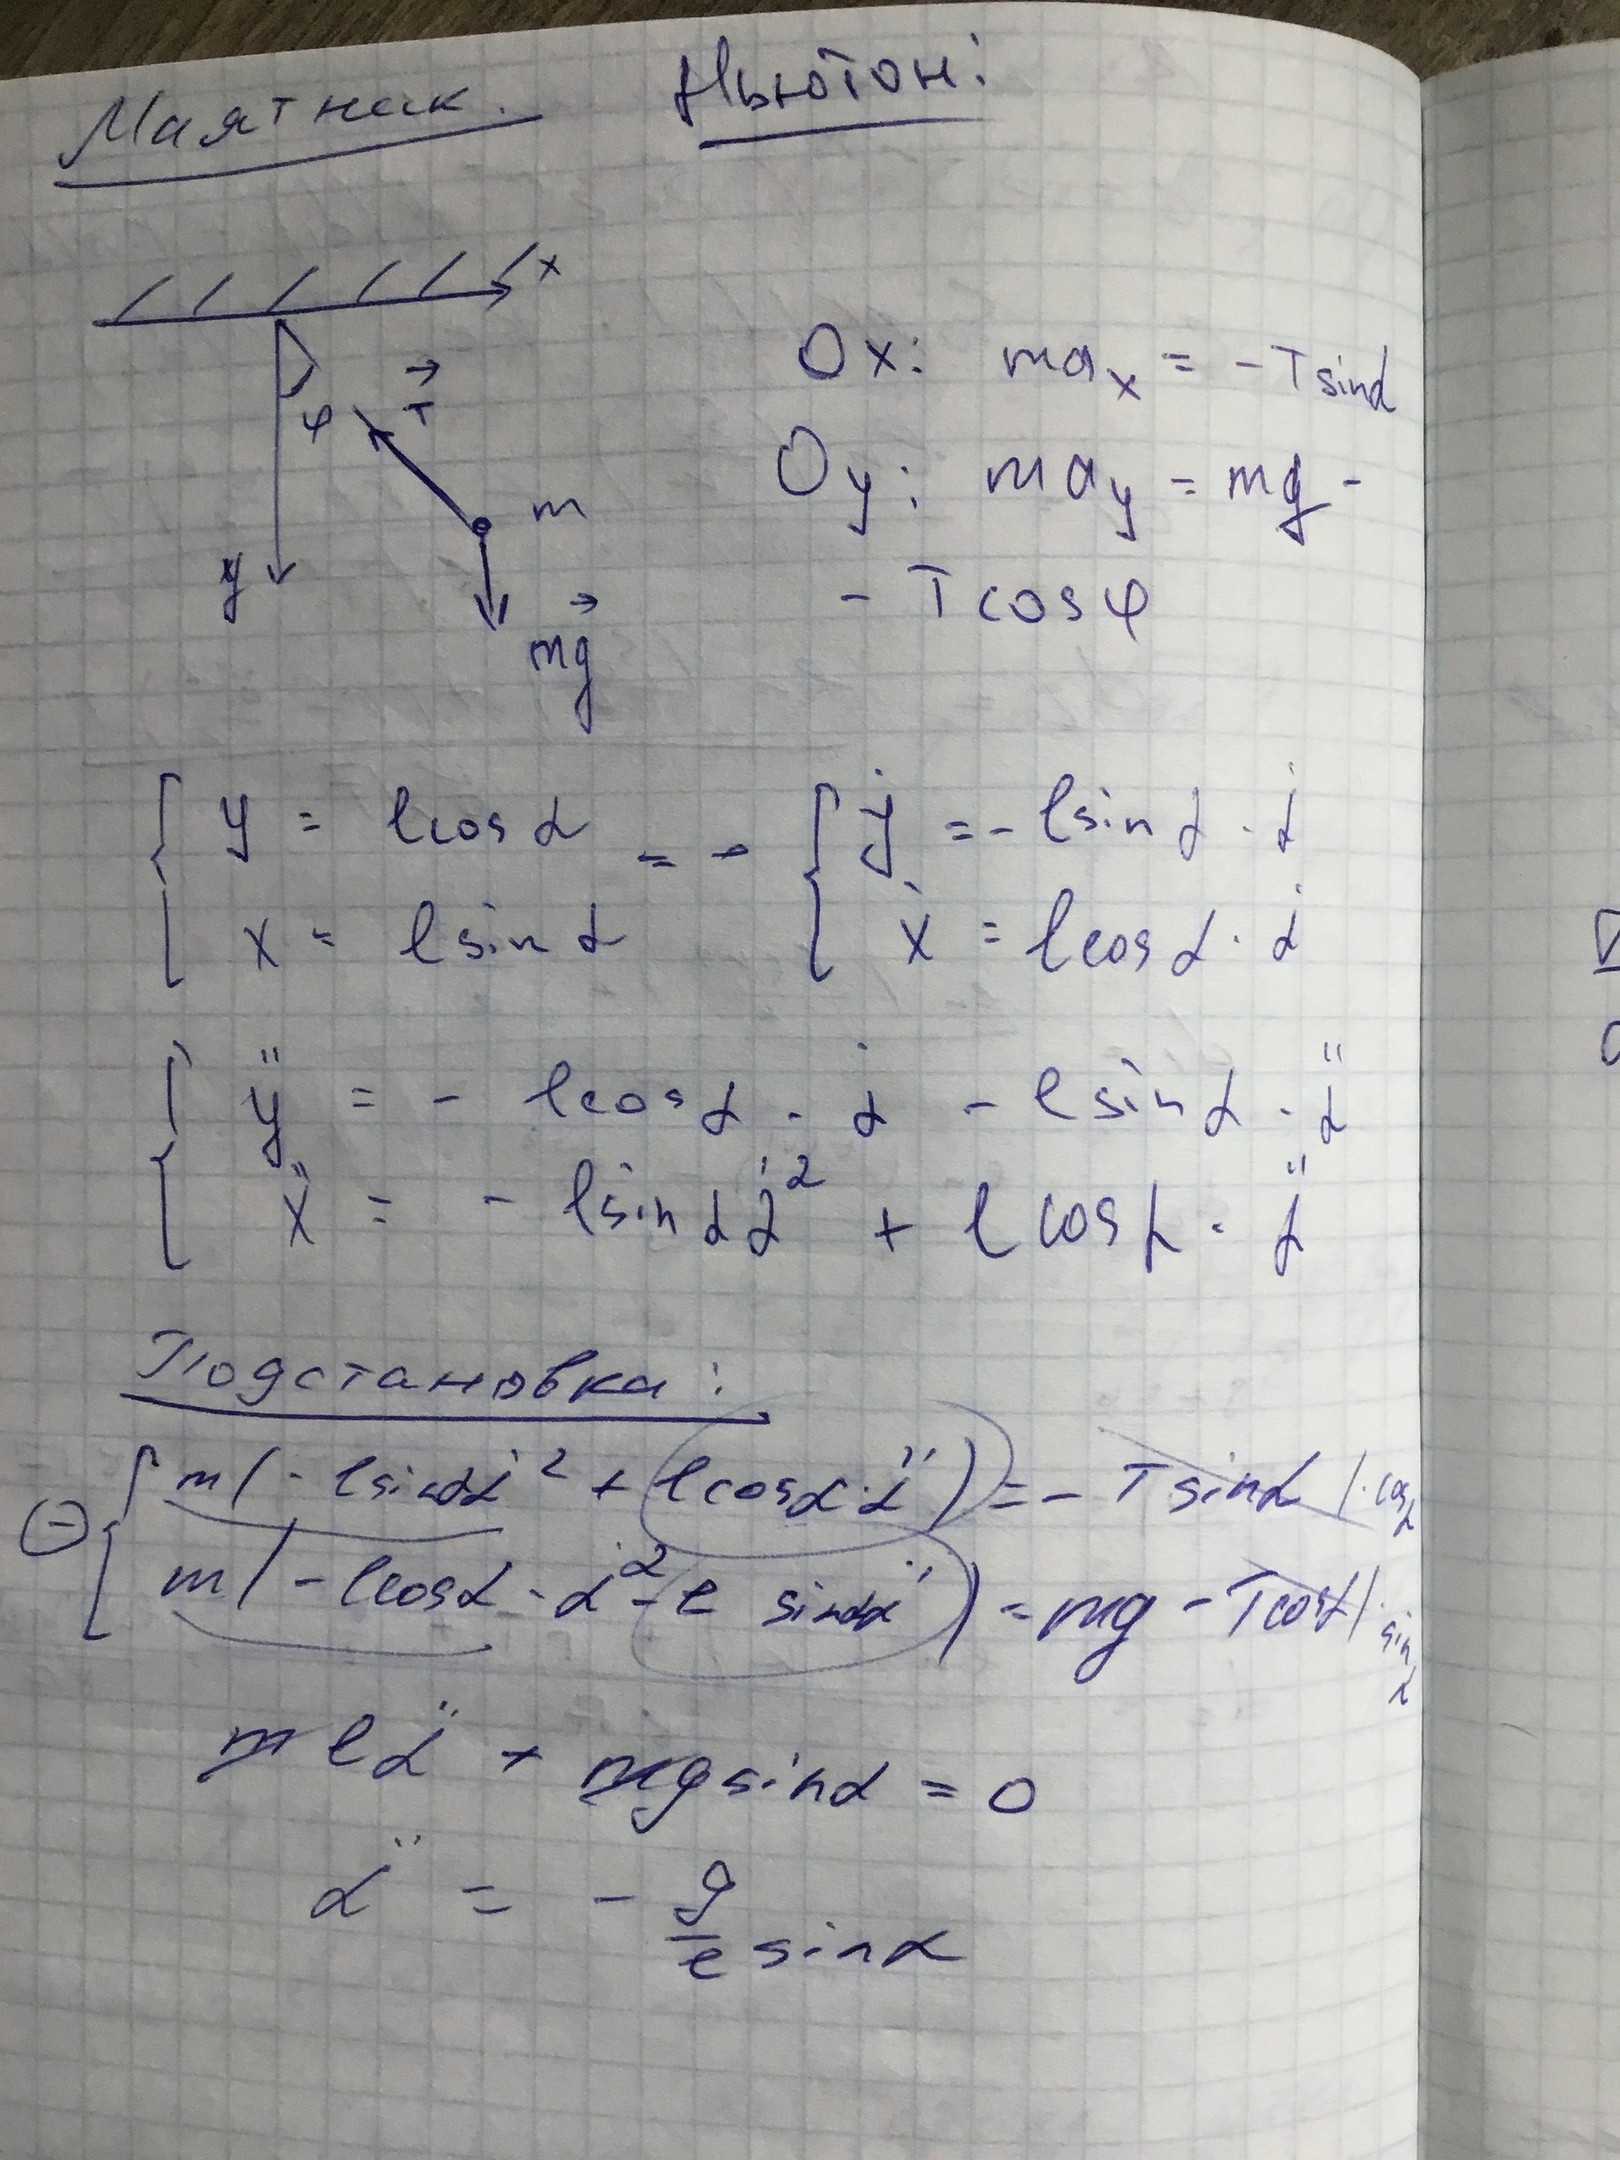 Маятник. Ньютон:
x
φ T⃗
m
y
mg⃗
Ox: maₓ = - T sinα
Oy: ma_y = mg -
- T cosφ
{ y = l cosα => { ẏ = - l sinα · α̇
x = l sinα ẋ = l cosα · α̇
{ ÿ = - l cosα · α̇ - l sinα · α̈
ẍ = - l sinα α̇² + l cosα · α̈
Подстановка:
⊖ { m(- l sinα α̇² + l cosα · α̈) = - T sinα | · cosα
m(- l cosα · α̇² - l sinα α̈) = mg - T cosα | · sinα
m l α̈ + mg sinα = 0
α̈ = - g/l sinα